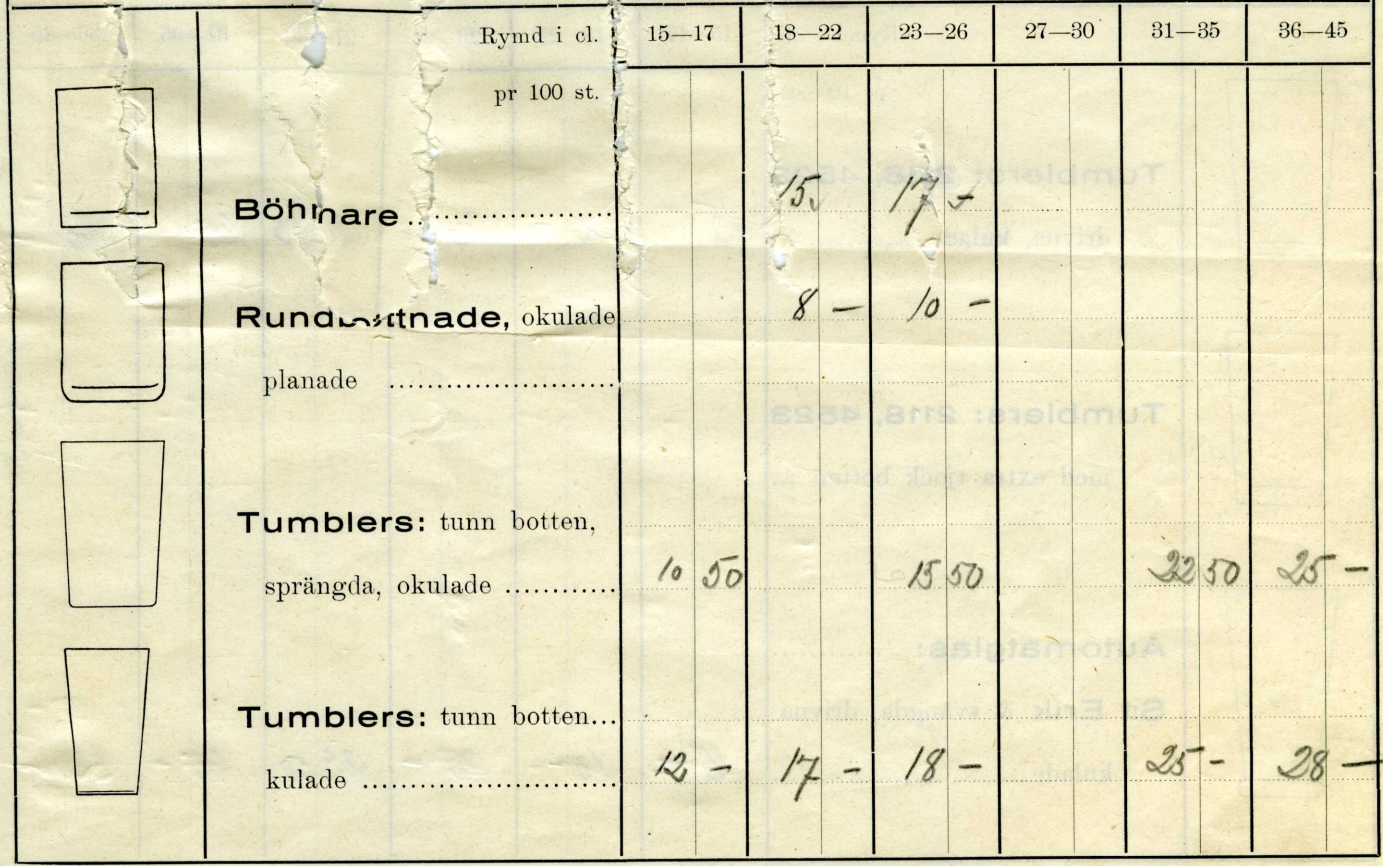 Rymd i cl. 15—17 18—22 23—26 27—30 31—35 36—45
pr 100 st.
Böhmare 15 17 -
Rundbottnade, okulade 8 — 10 -
planade
Tumblers: tunn botten,
sprängda, okulade 10 50 15 50 22 50 25 -
Tumblers: tunn botten
kulade 12 - 17 - 18 - 25 - 28 —